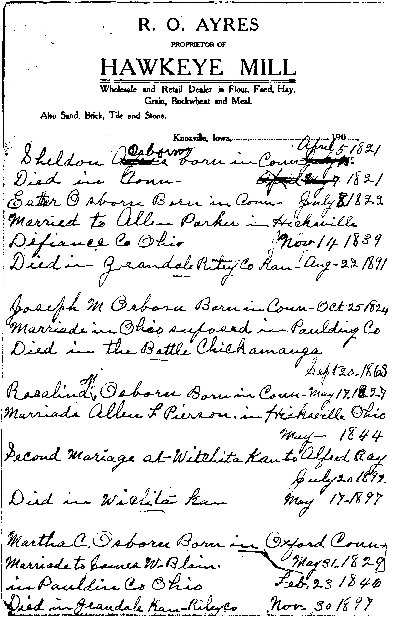 R. O. AYRES
PROPRIETOR OF
HAWKEYE MILL
Wholesale and Retail Dealer in Flour, Feed, Hay,
Grain, Buckwheat and Meal.
Also Sand, Brick, Tile and Stone.
Knoxville, Iowa, 190
Sheldon Osborn born in Conn April 5 1821
Died in Conn - 1821
Ester Osborn Born in Conn - July 8 1823
Married to Allen Parker in Hicksville
Defiance Co Ohio Nov 14 1839
Died in Grandale Riley Co Kan - Aug - 23 1891
Joseph M Osborn Born in Conn - Oct 25 1824
Marriade in Ohio suposed in Paulding Co
Died in the Battle Chickamauga
Sept 20 - 1863
Rosalind Osborn Born in Conn - May 17, 1827
Marriade Allen L Pierson, in Hicksville Ohio
May - 1844
Second Mariage at Witchita Kan to Alfred Ray
July 20 1892
Died in Wichita Kan May 17 - 1897
Martha C. Osborn Born in Oxford Conn
Marriade to James W. Blain May 31 - 1829
in Pauldin Co Ohio Feb. 23 1846
Died in Grandale Kan - Riley Co Nov. 30 1897